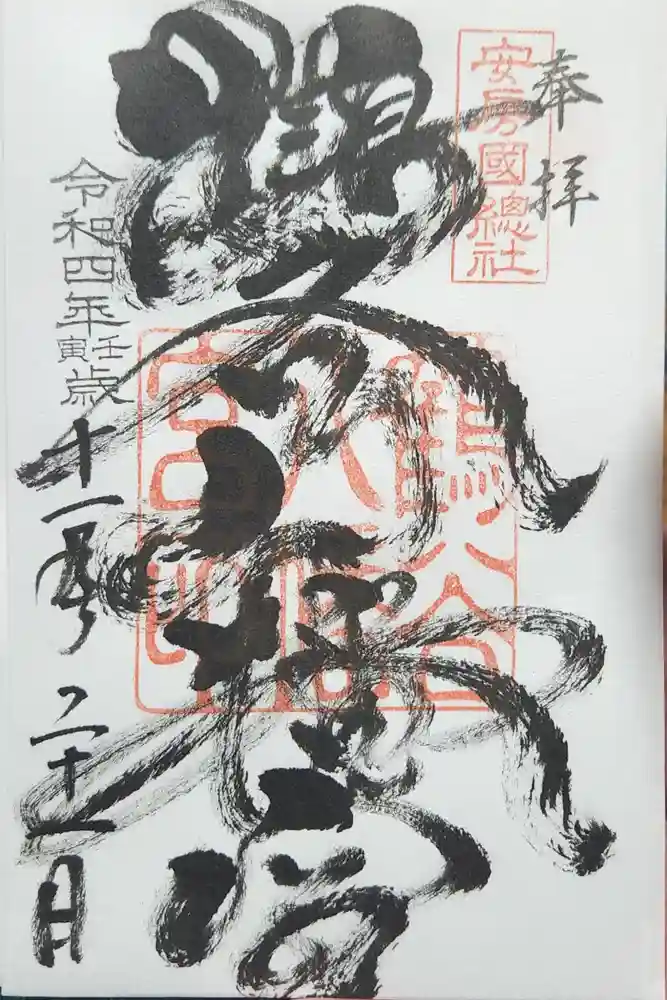 奉拝
安房國總社
鶴谷八幡宮
鶴谷
八幡
宮印
令和四年壬寅歳
十一月二十一日